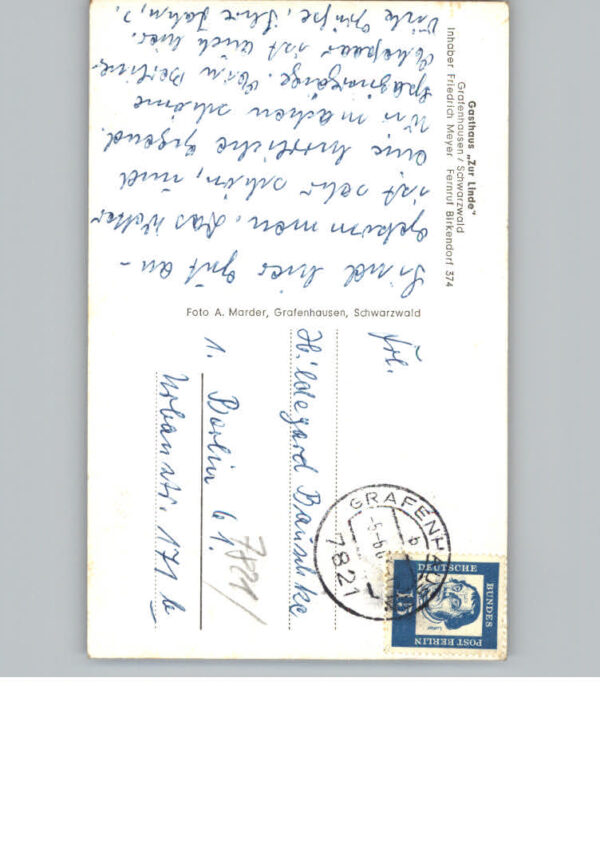 Gasthaus „Zur Linde"
Grafenhausen / Schwarzwald
Inhaber Friedrich Meyer Fernruf Birkendorf 374
Sind hier gut an-
gekommen. Das Wetter
ist sehr schön, und
eine herrliche Gegend.
Wir machen schöne
Spaziergänge. Ein Berliner-
Ehepaar ist auch hier.
Viele Grüße, Ihre
Foto A. Marder, Grafenhausen, Schwarzwald
Frl.
Hildegard Bauschke
1. Berlin 61.
Urbanstr. 171 b
7821/
GRAFENHAUSEN
7821
DEUTSCHE
BUNDES-
POST BERLIN
15
Luther